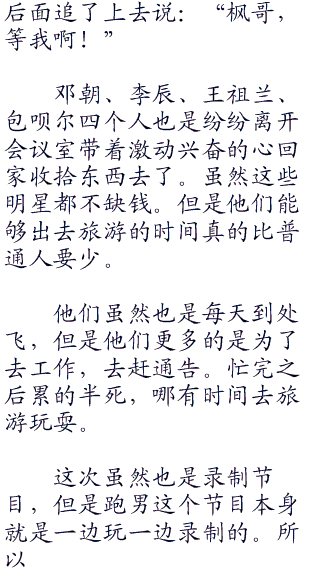 后面追了上去说：“枫哥，
等我啊！”
邓朝、李辰、王祖兰、
包呗尔四个人也是纷纷离开
会议室带着激动兴奋的心回
家收拾东西去了。虽然这些
明星都不缺钱。但是他们能
够出去旅游的时间真的比普
通人要少。
他们虽然也是每天到处
飞，但是他们更多的是为了
去工作，去赶通告。忙完之
后累的半死，哪有时间去旅
游玩耍。
这次虽然也是录制节
目，但是跑男这个节目本身
就是一边玩一边录制的。所
以